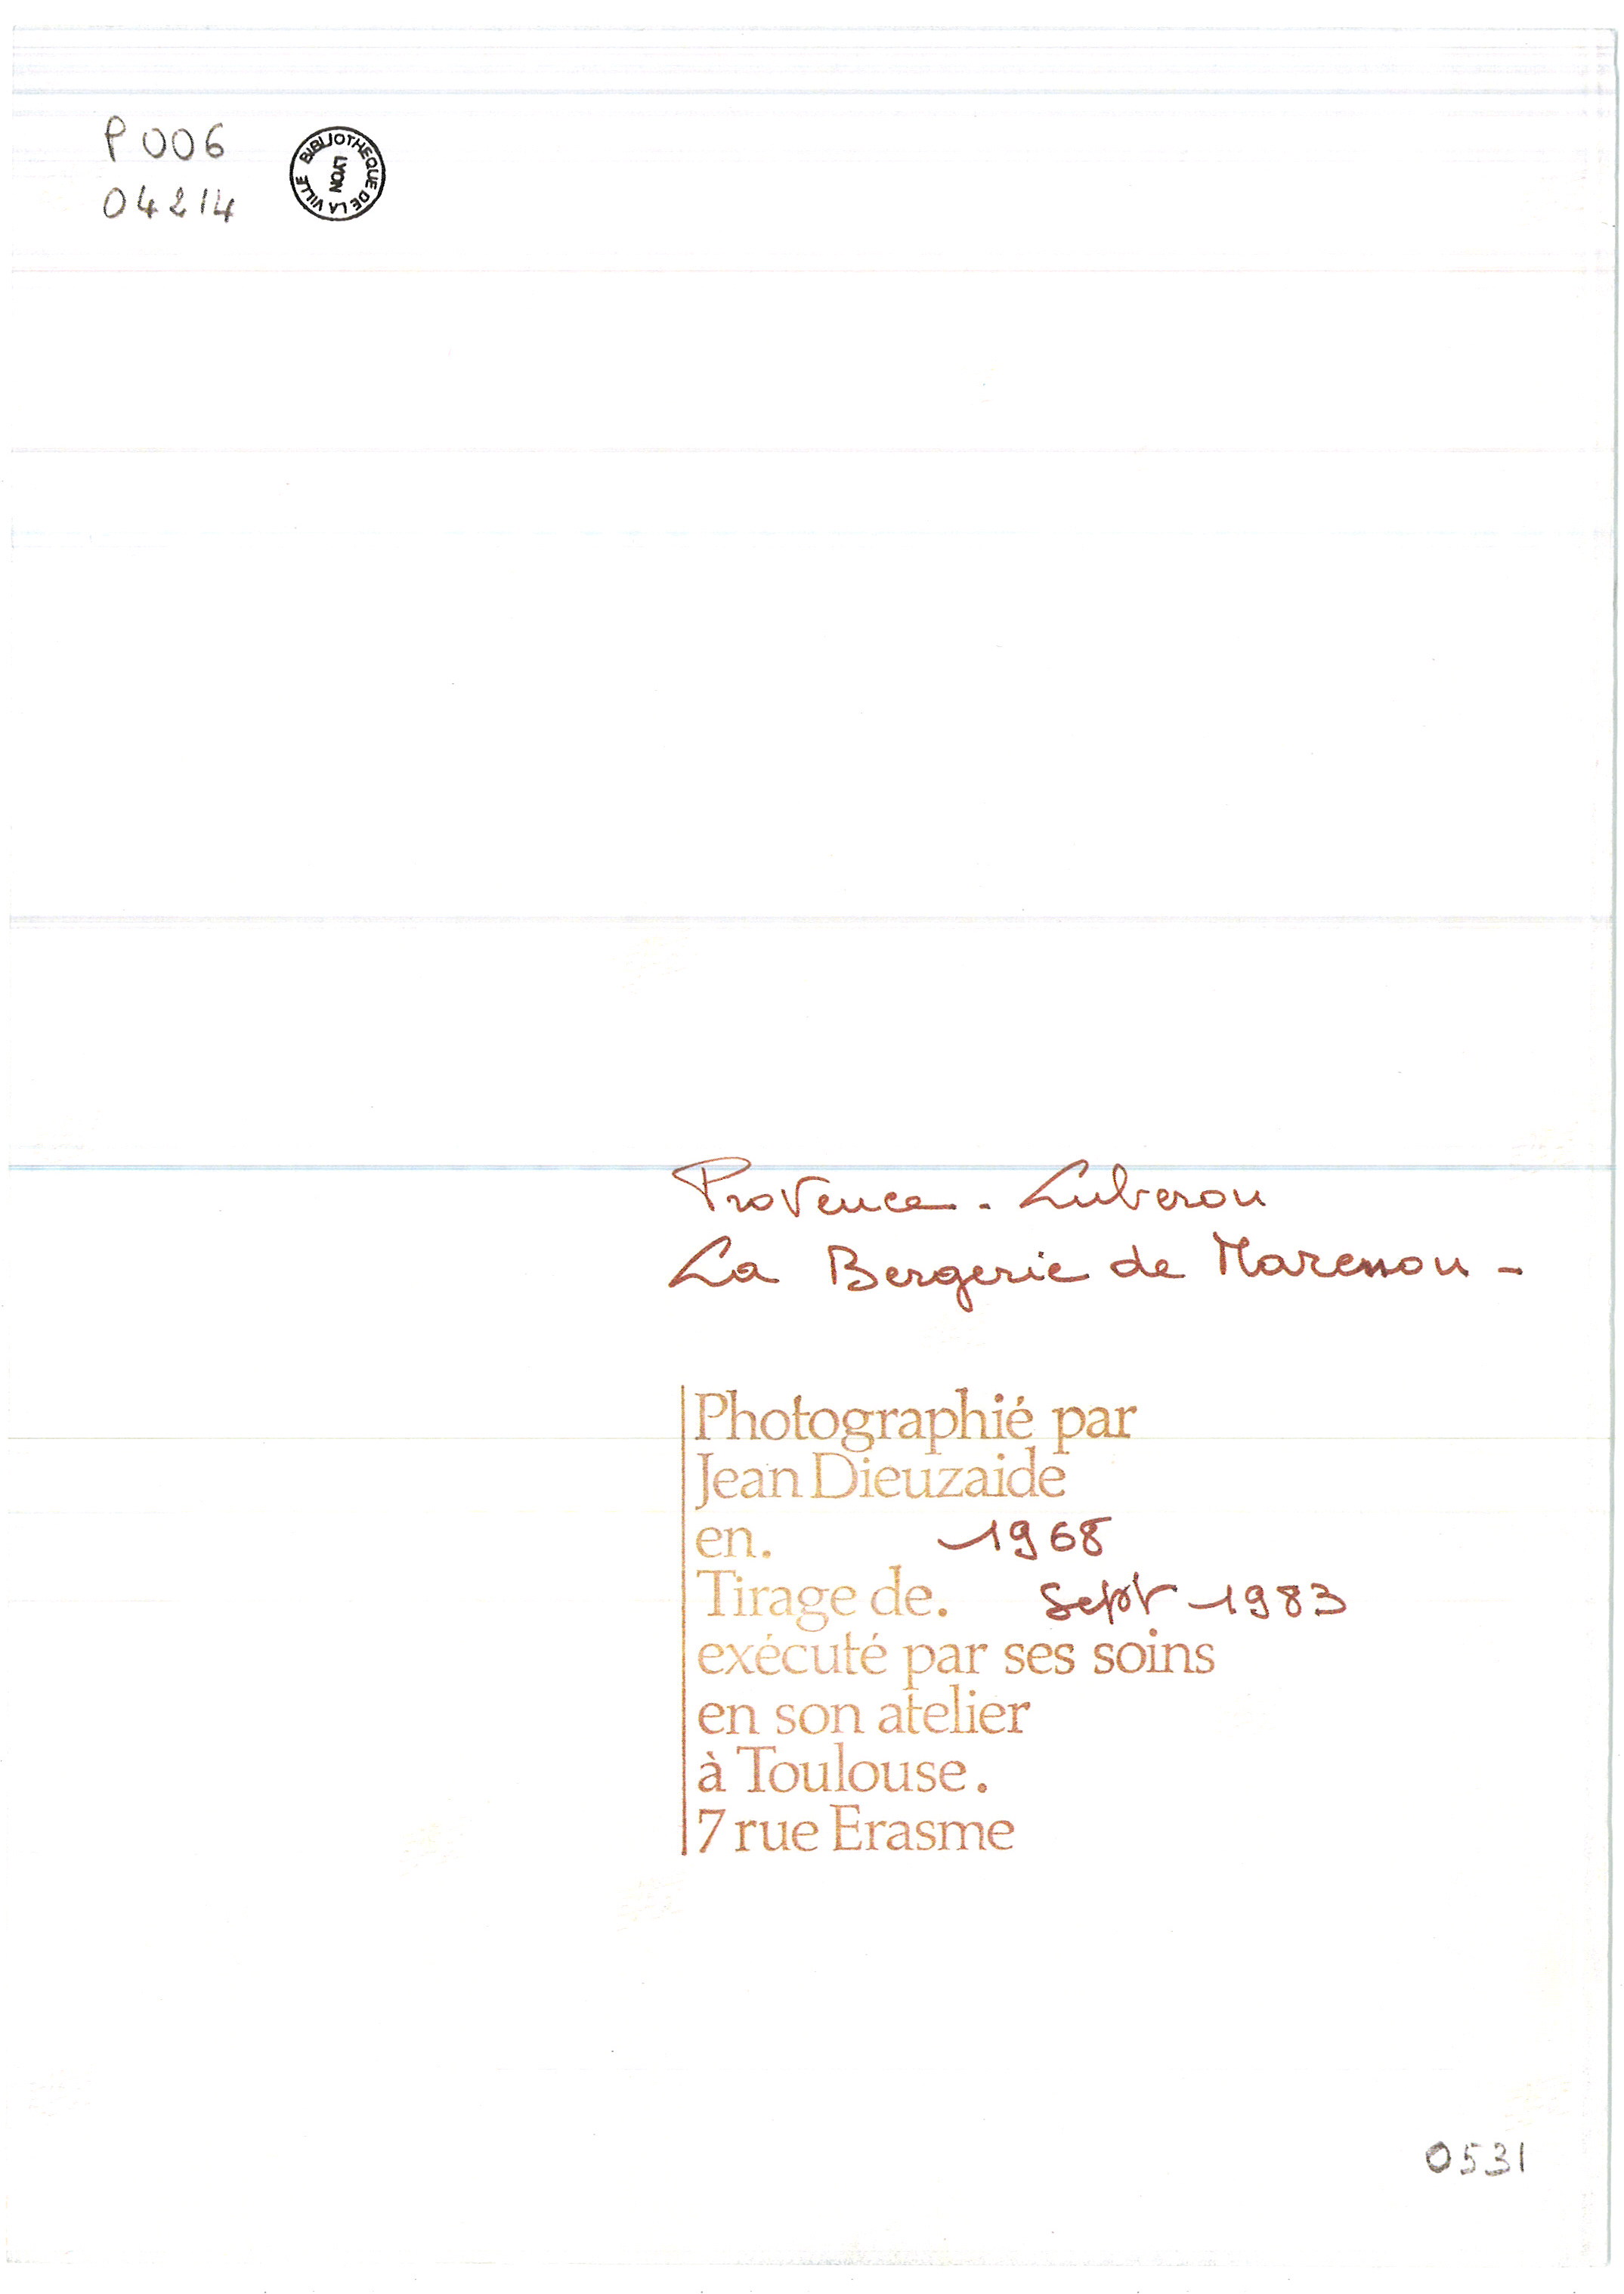 P 006
04214
BIBLIOTHEQUE DE LA VILLE
LYON
Provence - Luberon
La Bergerie de -
Photographié par
Jean Dieuzaide
en. 1968
Tirage de. Sept 1983
exécuté par ses soins
en son atelier
à Toulouse.
7 rue Erasme
0531